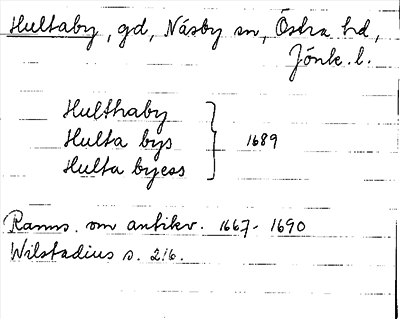 Hultaby, gd, Näsby sn, Östra hd,
Jönk. l.
Hulthaby
Hulta bys } 1689
Hulta byess
Ranns. om antikv. 1667-1690
Wilstadius s. 216.